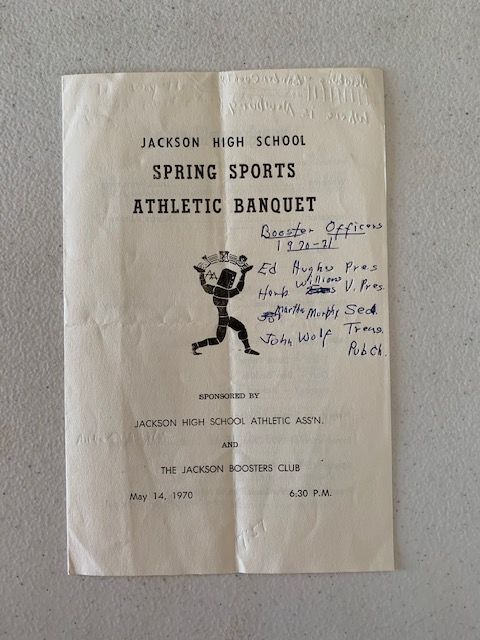 JACKSON HIGH SCHOOL
SPRING SPORTS
ATHLETIC BANQUET
Booster Officers
1970-71
Ed Hughes Pres
Herb Williams V. Pres.
Martha Murphy Sec.
John Wolf Treas.
Pub Ch.
SPONSORED BY
JACKSON HIGH SCHOOL ATHLETIC ASS'N.
AND
THE JACKSON BOOSTERS CLUB
May 14, 1970 6:30 P.M.